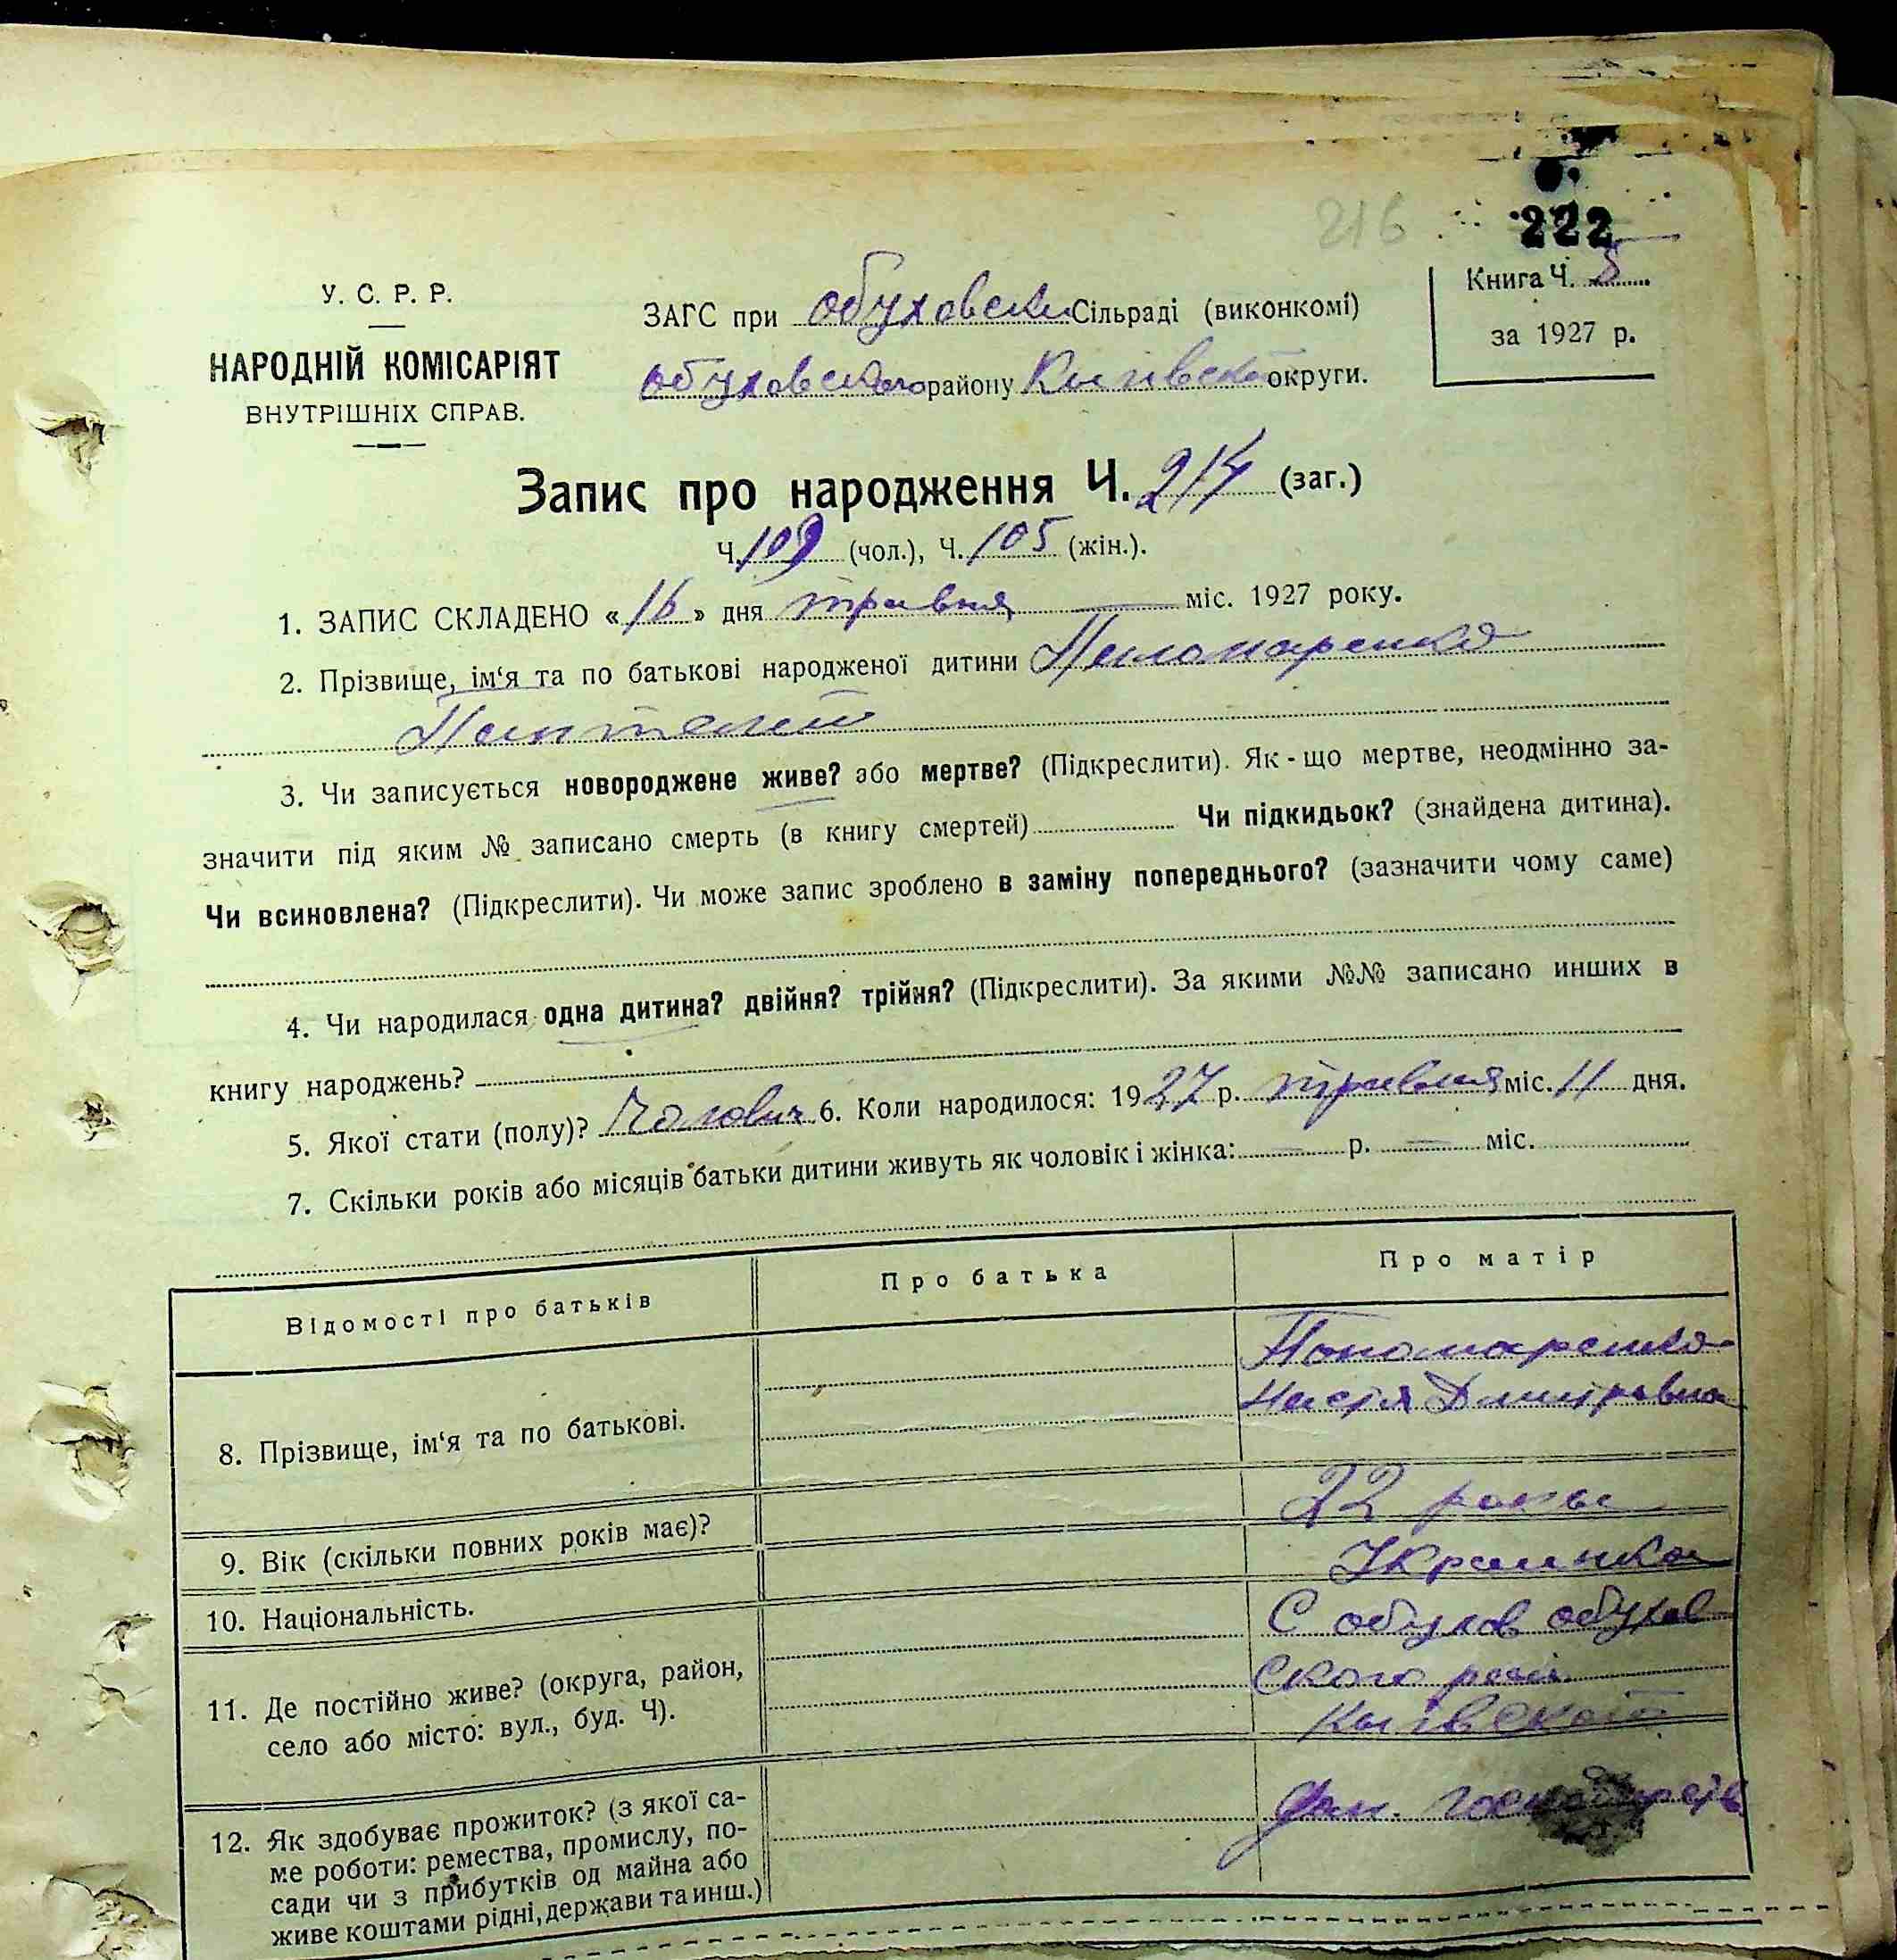 216
222
У. С. Р. Р.
НАРОДНІЙ КОМІСАРІЯТ
ВНУТРІШНІХ СПРАВ.
ЗАГС при обуховски Сільраді (виконкомі)
обуховского району Київской округи.
Книга Ч. 5
за 1927 р.
Запис про народження Ч. 214 (заг.)
Ч. 109 (чол.), Ч. 105 (жін.).
1. ЗАПИС СКЛАДЕНО « 16 » дня травня міс. 1927 року.
2. Прізвище, ім‘я та по батькові народженої дитини Пономаренко
Пантелей
3. Чи записується новороджене живе? або мертве? (Підкреслити). Як - що мертве, неодмінно за-
значити під яким № записано смерть (в книгу смертей) Чи підкидьок? (знайдена дитина).
Чи всиновлена? (Підкреслити). Чи може запис зроблено в заміну попереднього? (зазначити чому саме)
4. Чи народилася одна дитина? двійня? трійня? (Підкреслити). За якими №№ записано инших в
книгу народжень?
5. Якої стати (полу)? Чолович 6. Коли народилося: 1927 р. травня міс. 11 дня.
7. Скільки років або місяців батьки дитини живуть як чоловік і жінка: — р. — міс.
Відомості про батьків
Про батька
Про матір
8. Прізвище, ім‘я та по батькові.
Пономаренко
Настя Дмитровна
9. Вік (скільки повних років має)?
22 роки
10. Національність.
Украинка
11. Де постійно живе? (округа, район,
село або місто: вул., буд. Ч).
С обухов обухов
ского рай.
Київской
12. Як здобуває прожиток? (з якої са-
ме роботи: ремества, промислу, по-
сади чи з прибутків од майна або
живе коштами рідні, держави та инш.)